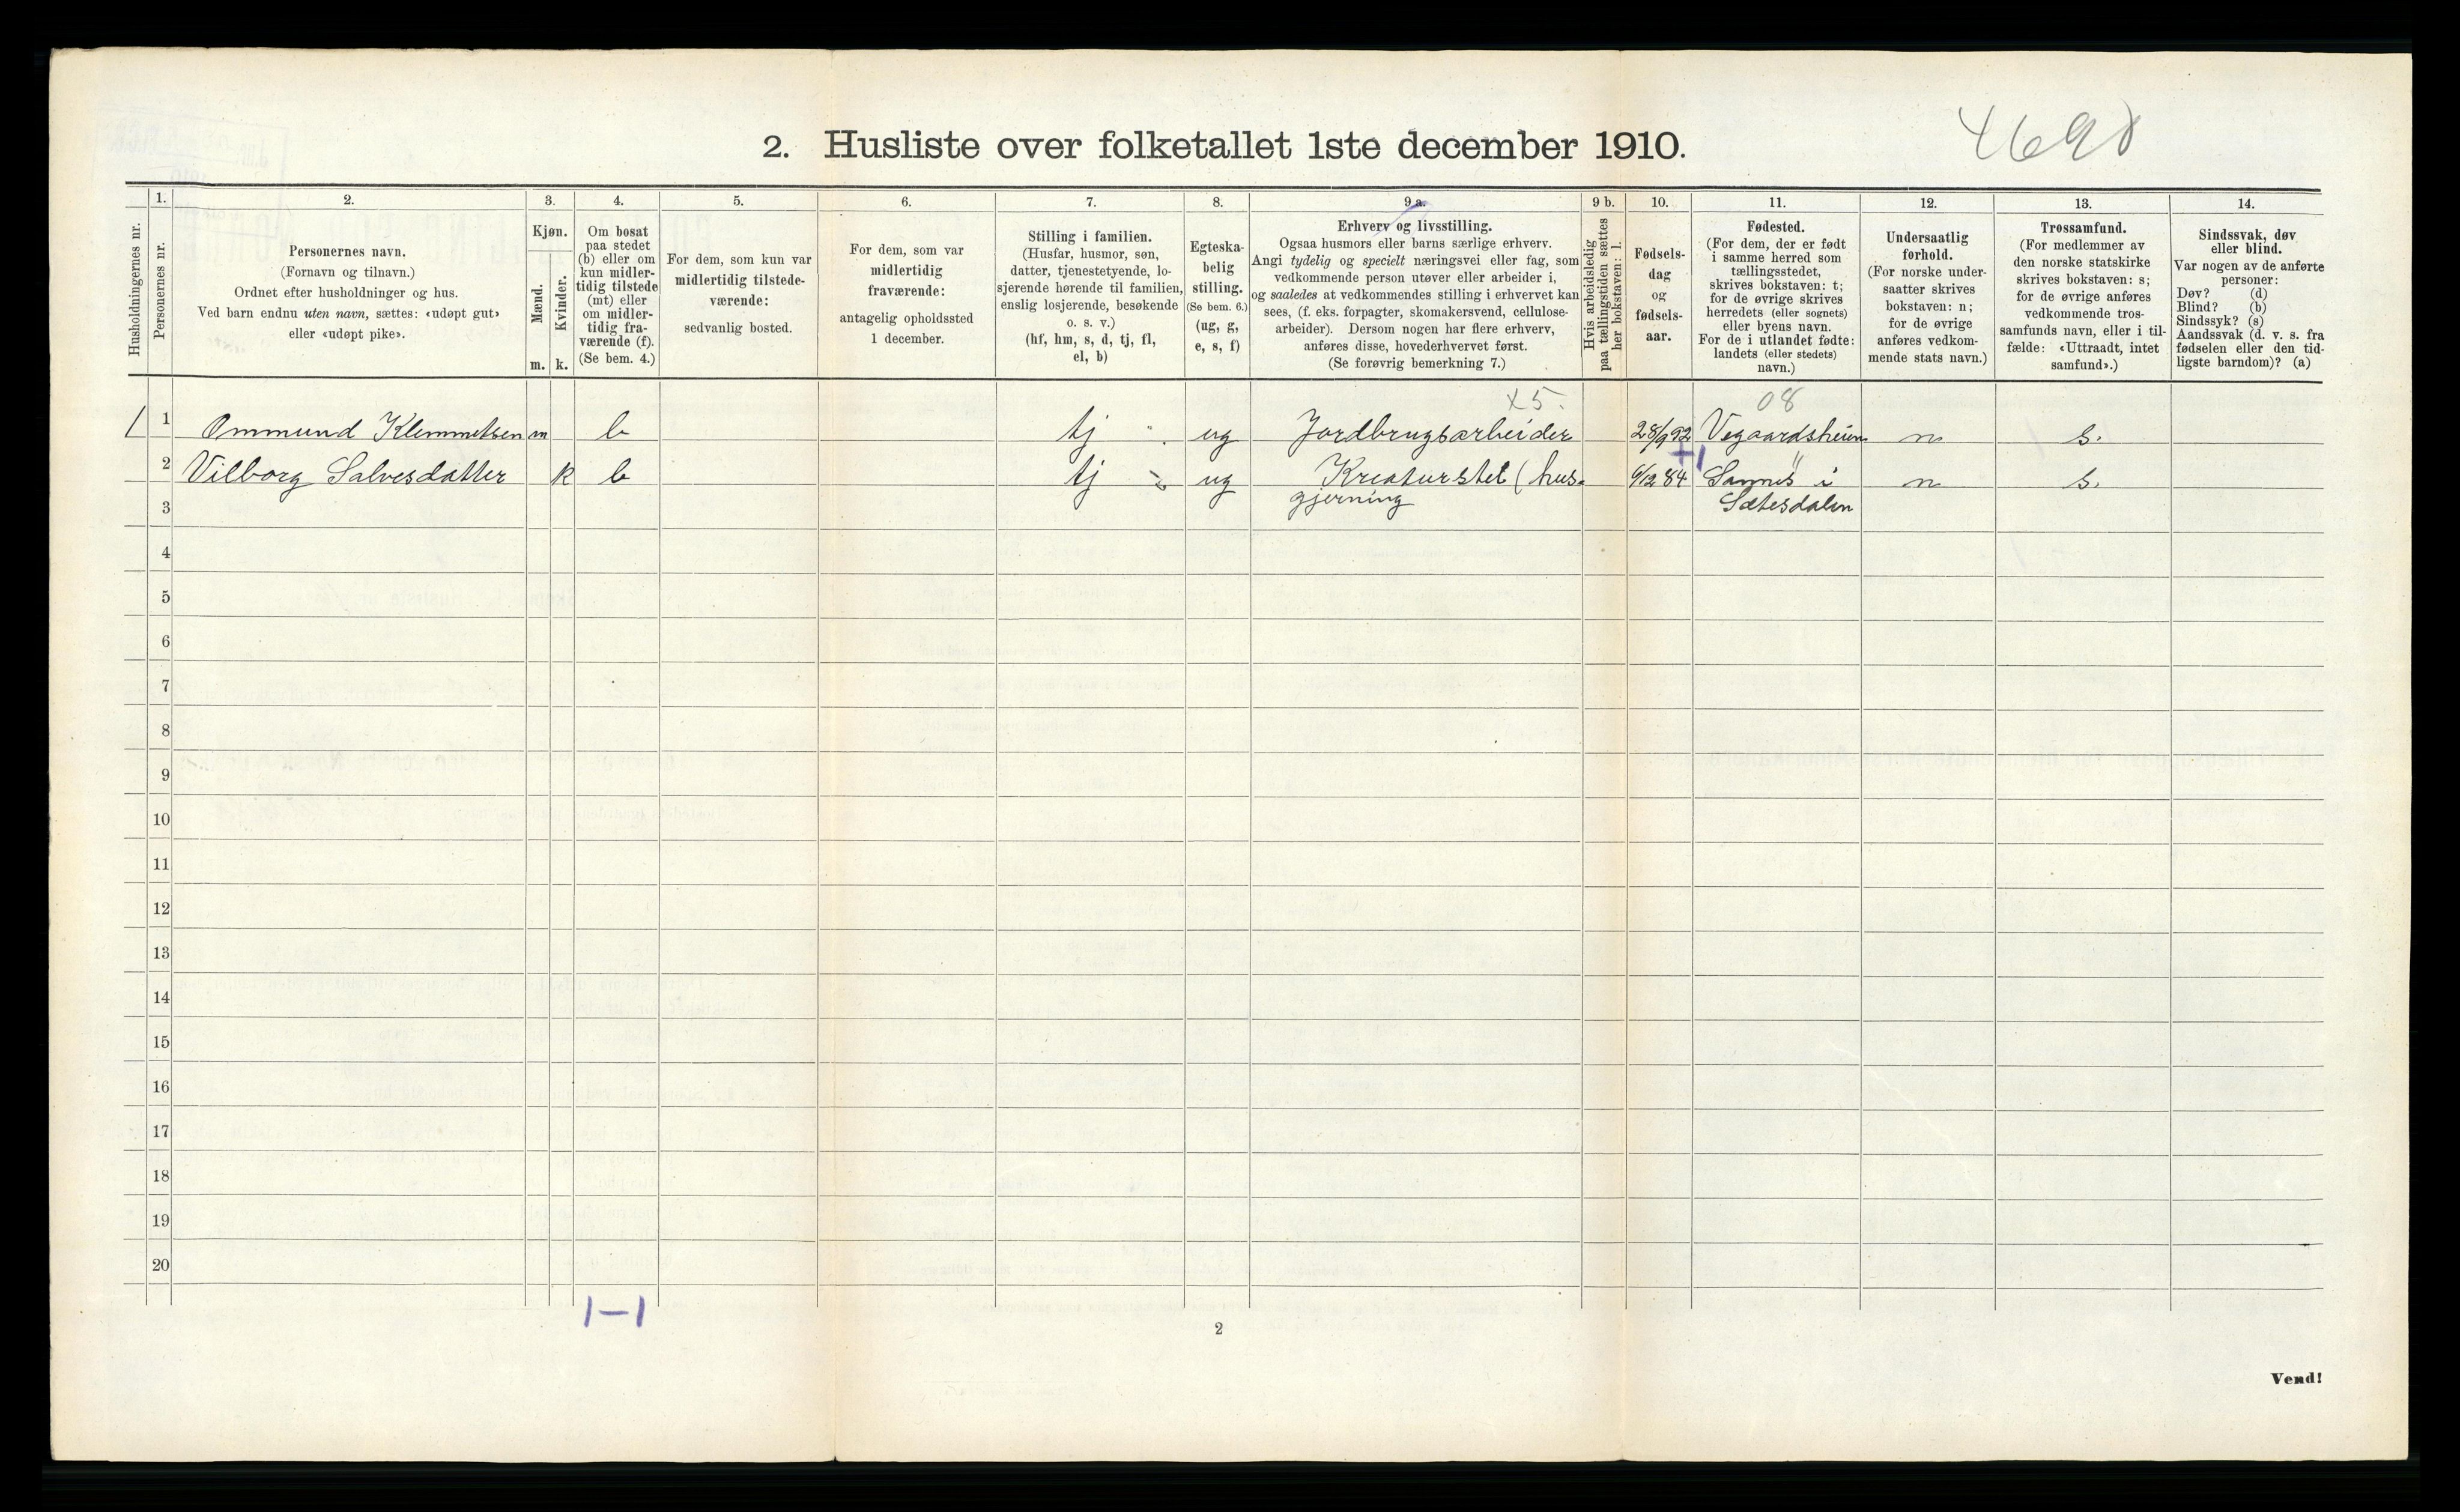 4698
2. Husliste over folketallet 1ste december 1910.
Husholdningernes nr.
1.
Personernes nr.
2.
Personernes navn.
(Fornavn og tilnavn.)
Ordnet efter husholdninger og hus.
Ved barn endnu uten navn, sættes: «udøpt gut»
eller «udøpt pike».
3.
Kjøn.
Mænd.
Kvinder.
m. k.
4.
Om bosat
paa stedet
(b) eller om
kun midler-
tidig tilstede
(mt) eller
om midler-
tidig fra-
værende (f).
(Se bem. 4.)
5.
For dem, som kun var
midlertidig tilstede-
værende:
sedvanlig bosted.
6.
For dem, som var
midlertidig
fraværende:
antagelig opholdssted
1 december.
7.
Stilling i familien.
(Husfar, husmor, søn,
datter, tjenestetyende, lo-
sjerende hørende til familien,
enslig losjerende, besøkende
o. s. v.)
(hf, hm, s, d, tj, fl,
el, b)
8.
Egteska-
belig
stilling.
(Se bem. 6.)
(ug, g,
e, s, f)
9 a.
Erhverv og livsstilling.
Ogsaa husmors eller barns særlige erhverv.
Angi tydelig og specielt næringsvei eller fag, som
vedkommende person utøver eller arbeider i,
og saaledes at vedkommendes stilling i erhvervet kan
sees, (f. eks. forpagter, skomakersvend, cellulose-
arbeider). Dersom nogen har flere erhverv,
anføres disse, hovederhvervet først.
(Se forøvrig bemerkning 7.)
9 b.
Hvis arbeidsledig
paa tællingstiden sættes
her bokstaven: l.
10.
Fødsels-
dag
og
fødsels-
aar.
11.
Fødested.
(For dem, der er født
i samme herred som
tællingsstedet,
skrives bokstaven: t;
for de øvrige skrives
herredets (eller sognets)
eller byens navn.
For de i utlandet fødte:
landets (eller stedets)
navn.)
12.
Undersaatlig
forhold.
(For norske under-
saatter skrives
bokstaven: n;
for de øvrige
anføres vedkom-
mende stats navn.)
13.
Trossamfund.
(For medlemmer av
den norske statskirke
skrives bokstaven: s;
for de øvrige anføres
vedkommende tros-
samfunds navn, eller i til-
fælde: «Uttraadt, intet
samfund».)
14.
Sindssvak, døv
eller blind.
Var nogen av de anførte
personer:
Døv? (d)
Blind? (b)
Sindssyk? (s)
Aandssvak (d. v. s. fra
fødselen eller den tid-
ligste barndom)? (a)
x5. 08
1 1 Ommund Klemmetsen m b tj ug Jordbrugsarbeider 28/9 92 Vegaardsheien n s.
+1 "
2 Vilborg Salvesdatter k b tj ug Kreaturstel (hus- 6/12 84 Sannes i n s.
3 gjerning Sætesdalen
4
5
6
7
8
9
10
11
12
13
14
15
16
17
18
19
20
1-1
2
Vend!